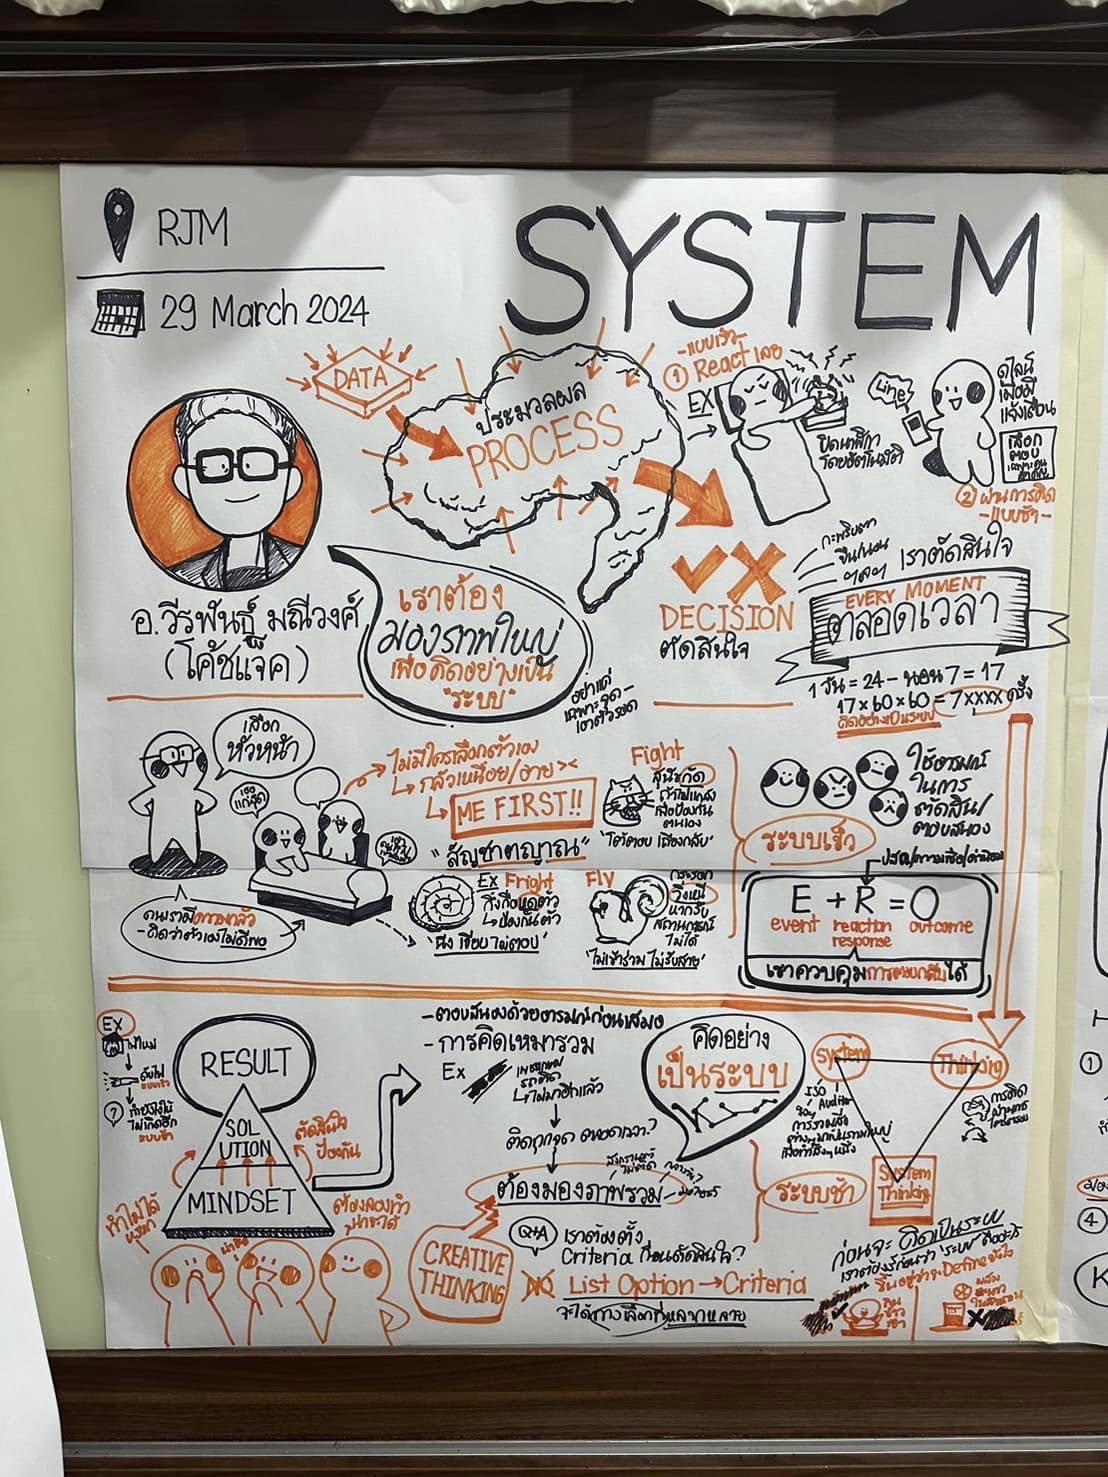 RJM
29 March 2024
SYSTEM
DATA
ประมวลผล
PROCESS
-แบบเร็ว-
① React เลย
EX
ปิดนาฬิกา
โดยอัตโนมัติ
Line
ดูไลน์
เมื่อมี
แจ้งเตือน
เลือก
ตอบ
② ผ่านการคิด
-แบบช้า-
DECISION
ตัดสินใจ
กะพริบตา
ยืน/นอน
ฯลฯ
เราตัดสินใจ
EVERY MOMENT
ตลอดเวลา
1 วัน = 24 - นอน 7 = 17
17 x 60 x 60 = 7xxxx ครั้ง
คิดอย่างเป็นระบบ
อ.วีรพันธุ์ มณีวงศ์
(โค้ชแจ็ค)
เราต้อง
มองภาพใหญ่
เพื่อคิดอย่างเป็น
"ระบบ"
อย่าแค่
เฉพาะจุด-
เอาตัวรอด
เลือก
หัวหน้า
เธอ
แก่สุด
→ ไม่มีใครเลือกตัวเอง
↳ กลัวเหนื่อย/อาย ><
↳ ME FIRST!!
"สัญชาตญาณ"
คนเรามีความกลัว
-คิดว่าตัวเองไม่ดีพอ
Fight
เพื่อป้องกัน
ตนเอง
"โต้ตอบ เถียงกลับ"
EX Fright
กิ้งกือขดตัว
↳ ป้องกันตัว
"นิ่ง เงียบ ไม่ตอบ"
Fly
กระรอก
วิ่งหนี
หากรับ
สถานการณ์
ไม่ได้
"ไม่เข้าร่วม ไม่รับสาย"
ระบบเร็ว
ใช้อารมณ์
ในการ
ตัดสิน/
ตอบสนอง
E + R = O
event reaction outcome
response
เราควบคุมการตอบกลับได้
Ex
ไฟไหม้
ดับไฟ
แบบเร็ว
?
ทำยังไงให้
ไม่เกิดอีก
แบบช้า
RESULT
SOL
UTION
MINDSET
ตัดสินใจ
ป้องกัน
ทำไม่ได้
หรอก
น่าจะ
ต้องลองทำ
น่าจะได้
- ตอบสนองด้วยอารมณ์ก่อนเสมอ
- การคิดเหมารวม
Ex
รถติด
↳ ไม่มาอีกแล้ว
ติดทุกจุด ตลอดเวลา?
ต้องมองภาพรวม
CREATIVE
THINKING
Q&A
เราต้องตั้ง
Criteria ก่อนตัดสินใจ?
NO List Option → Criteria
จะได้ทางเลือกที่หลากหลาย
คิดอย่าง
เป็นระบบ
ระบบช้า
System
Thinking
ISO
Auditor
การรวมสิ่ง
ต่างๆ มาเป็นรวมใหญ่
เพื่อทำสิ่งๆ หนึ่ง
การคิด
System
Thinking
ก่อนจะ คิดเป็นระบบ
เราต้องรู้ก่อนว่า "ระบบ" คืออะไร
ขึ้นอยู่จะ Define ยังไง
①
④
K